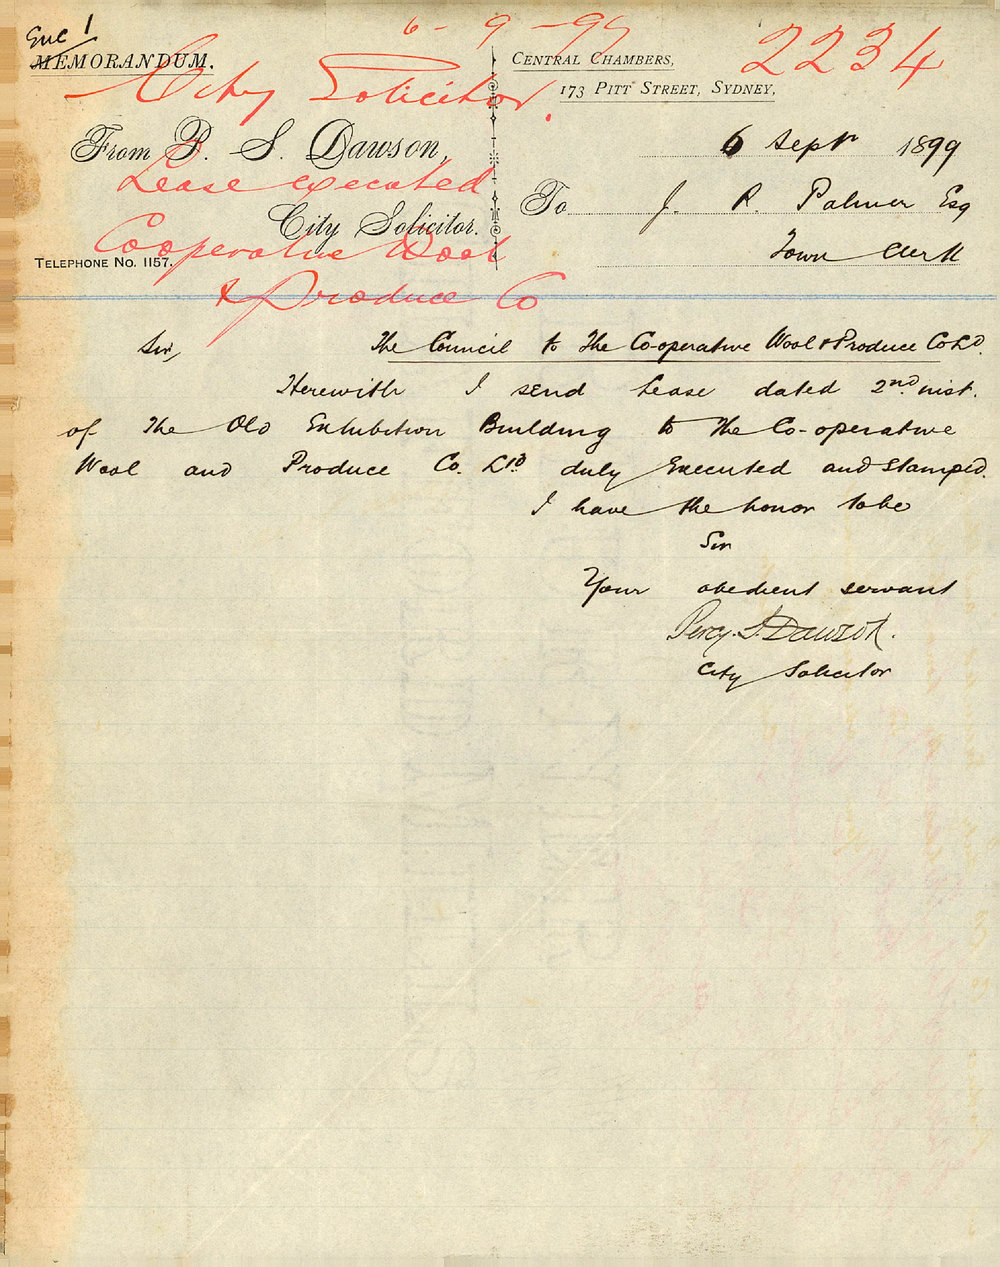 Encl 1
6-9-99
2234
MEMORANDUM.
CENTRAL CHAMBERS,
173 PITT STREET, SYDNEY,
City Solicitor.
From P. S. Dawson,
6 Sept 1899
Lease executed
To J. R. Palmer Esq
City Solicitor.
Cooperative Wool
Town Clerk
TELEPHONE No. 1157.
& Produce Co
Sir, The Council to The Co-operative Wool & Produce Co Ld.
Herewith I send Lease dated 2nd inst.
of The Old Exhibition Building to The Co-operative
Wool and Produce Co. Ltd duly Executed and Stamped.
I have the honor to be
Sir
Your obedient servant
Percy. S. Dawson.
City Solicitor